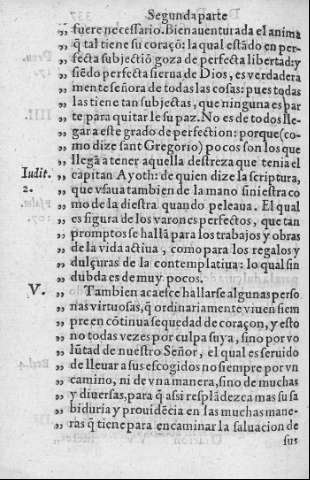 Segunda parte
„ fuere necessario. Bienauenturada el anima
„ q̃ tal tiene su coraçõ: la qual estãdo en per-
„ fecta subjectiõ goza de perfecta libertad: y
„ siẽdo perfecta sierua de Dios, es verdadera
„ mente señora de todas las cosas: pues todas
„ las tiene tan subjectas, que ninguna es par
„ te para quitar le su paz. No es de todos lle-
„ gar a este grado de perfection: porque (co-
„ mo dize sant Gregorio) pocos son los que
„ llegã a tener aquella destreza que tenia el
Iudit. „ capitan Ayoth: de quien dize la scriptura,
2. „ que vsaua tambien de la mano siniestra co
„ mo de la diestra quando peleaua. El qual
„ es figura de los varones perfectos, que tan
„ promptos se hallã para los trabajos y obras
„ de la vida actiua, como para los regalos y
„ dulçuras de la contemplatiua: lo qual sin
„ dubda es de muy pocos.
V. „ Tambien acaesce hallarse algunas perso
„ nas virtuosas, q̃ ordinariamente viuen siem
„ pre en cõtinua sequedad de coraçon, y esto
„ no todas vezes por culpa suya, sino por vo
„ lũtad de nuestro Señor, el qual es seruido
„ de lleuar a sus escogidos no siempre por vn
„ camino, ni de vna manera, sino de muchas
„ y diuersas, para q̃ assi resplãdezca mas su sa
„ biduria y prouidẽcia en las muchas mane-
„ ras q̃ tiene para encaminar la saluacion de
sus